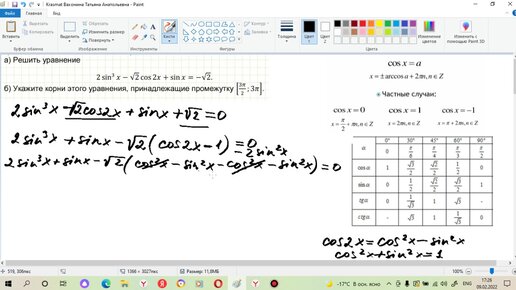 Krasmat Вахонина Татьяна Анатольевна - Paint
Файл Главная Вид
Вставить
Выделить
Кисти
Фигуры
Толщина
Цвет 1
Цвет 2
Изменение цветов
Изменить с помощью Paint 3D
Буфер обмена
Изображение
Инструменты
Фигуры
Цвета
а) Решить уравнение
2 sin³ x − √2 cos 2x + sin x = −√2.
б) Укажите корни этого уравнения, принадлежащие промежутку [3π/2; 3π].
2 sin³x − √2cos2x + sinx + √2 = 0
2 sin³x + sinx − √2(cos2x − 1) = 0
− 2 sin²x
2 sin³x + sinx − √2(cos²x − sin²x − cos²x − sin²x) = 0
cos x = a
x = ± arccos a + 2πn, n ∈ Z
Частные случаи:
cos x = 0 cos x = 1 cos x = −1
x = π/2 + πn, n ∈ Z x = 2πn, n ∈ Z x = π + 2πn, n ∈ Z
α 0° 0 30° π/6 45° π/4 60° π/3 90° π/2
cos α 1 √3/2 √2/2 1/2 0
sin α 0 1/2 √2/2 √3/2 1
tg α 0 1/√3 1 √3 -
ctg α - √3 1 1/√3 0
cos2x = cos²x − sin²x
cos²x + sin²x = 1
519, 306пкс
1366 × 3027пкс
Размер: 11,0МБ
100%
-17°C В осн. ясно
17:28
09.02.2022